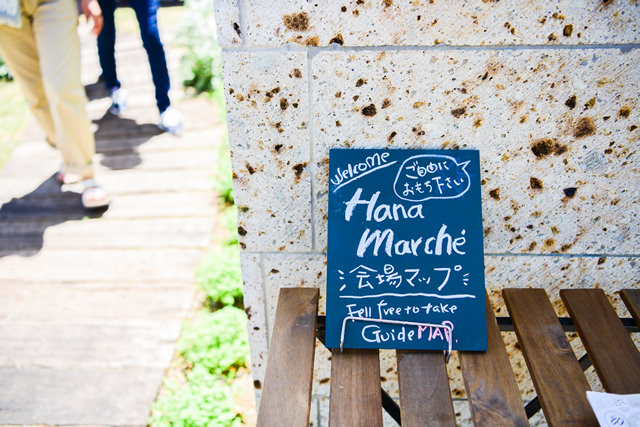 welcome
ご自由に
おもち下さい
Hana
Marché
会場マップ
Fell free to take
Guide MAP